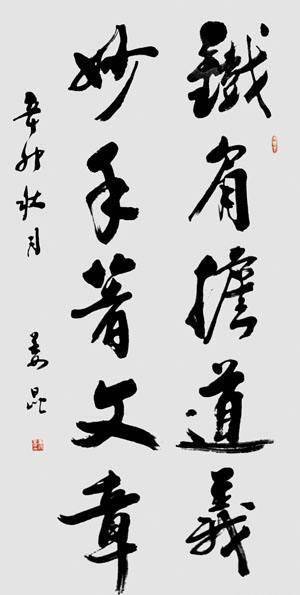 鐵肩擔道義
妙手著文章
辛卯秋月
姜昆